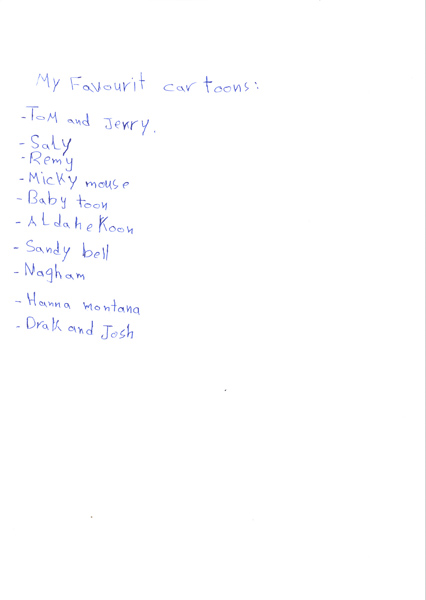 My Favourit cartoons:
- Tom and Jerry.
- Saly
- Remy
- Micky mouse
- Baby toon
- Aldahekoon
- Sandy bell
- Nagham
- Hanna montana
- Drak and Josh